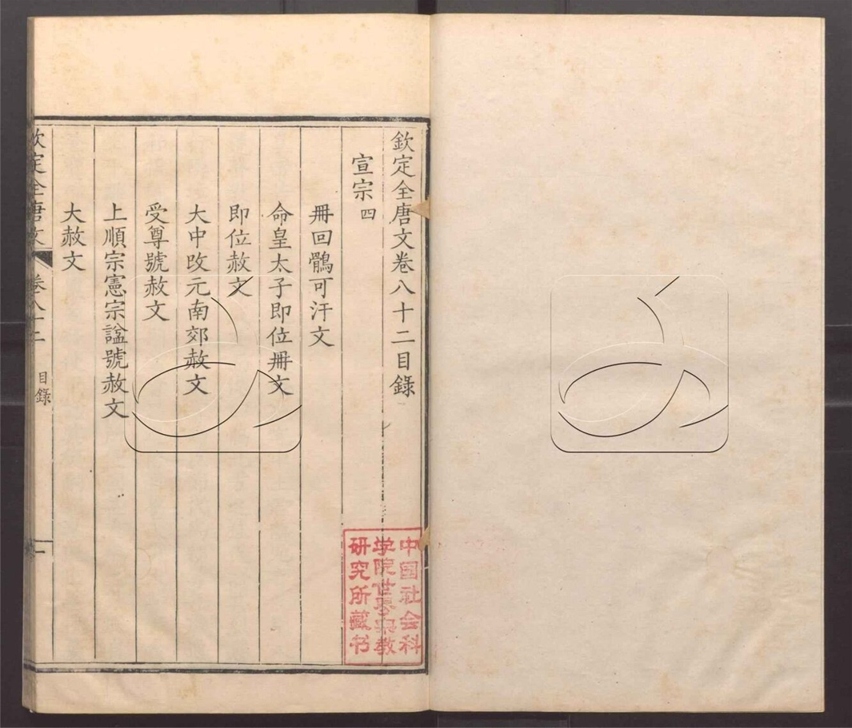 欽定全唐文卷八十二目錄
宣宗四
冊回鶻可汗文
命皇太子即位冊文
即位赦文
大中改元南郊赦文
受尊號赦文
上順宗憲宗諡號赦文
大赦文
欽定全唐文 卷八十二 目錄 一
中国社会科
学院世界宗教
研究所藏书